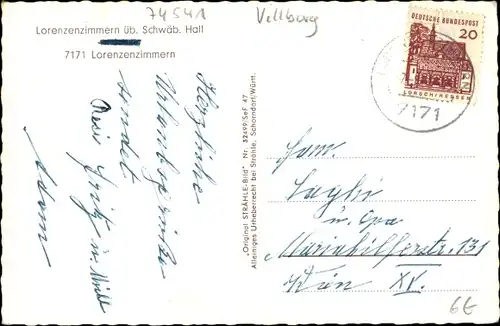 74541
Vellberg
Lorenzenzimmern üb. Schwäb. Hall
7171 Lorenzenzimmern
DEUTSCHE BUNDESPOST
20
LORSCH/HESSEN
7171
Herzliche
Urlaubsgrüße
sendet
Fritz u.
Adam
„Original STRÄHLE-Bild" Nr. 32499/SeF 47
Alleiniges Urheberrecht bei Strähle, Schorndorf/Württ.
Fam.
u. Opa
Mariahilferstr. 131
Wien XV.
6€